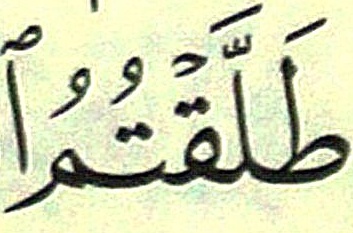 طَلَّقۡتُمُ ٱ